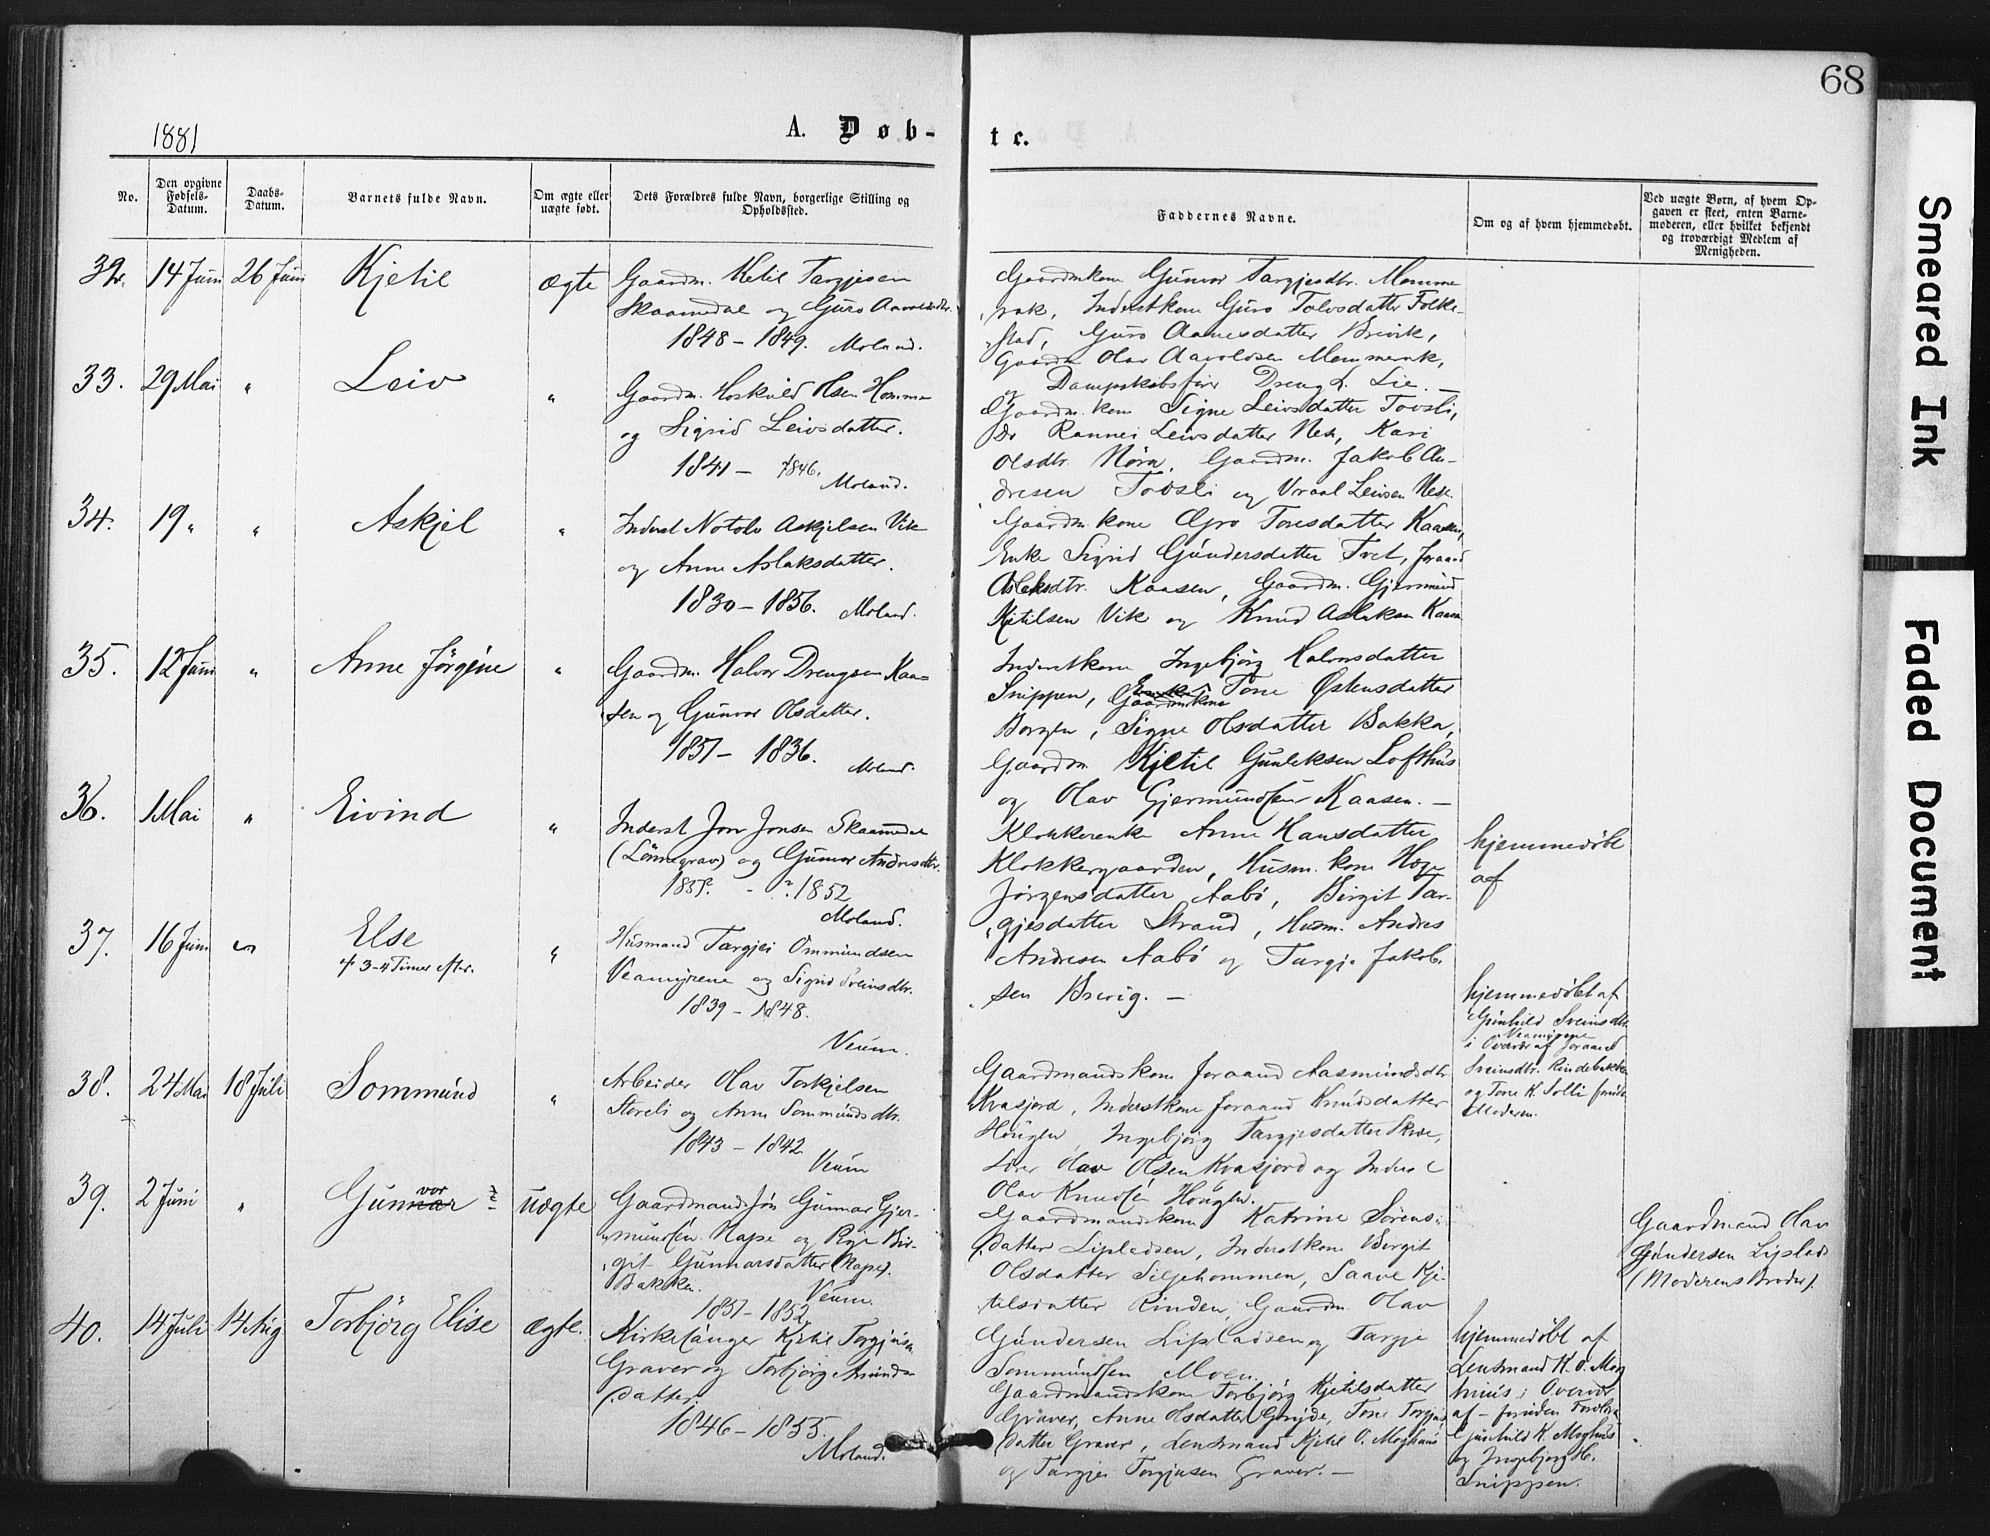 68
1881
A. Døb-
te.
No.
Den opgivne Fødsels-Datum.
Daabs-Datum.
Barnets fulde Navn.
Om ægte eller uægte født.
Dets Forældres fulde Navn, borgerlige Stilling og Opholdssted.
Faddernes Navne.
Om og af hvem hjemmedøbt.
Ved uægte Børn, af hvem Opgaven er skeet, enten Barnemoderen, eller hvilket bekjendt og troværdigt Medlem af Menigheden.
32. 14 Juni 26 Juni Kjetil ægte
Gaardm. Ketil Targjesen
Skaamedal og Guro Aavoldsdtr.
1848 – 1849. Moland.
Gaardmkone Gunvor Targjesdtr. Momme
rak, Inderstkone Guro Tolvsdatter Folke-
stad, Guro Aanesdatter Brevik,
Gaardm Olav Aavoldsen Mommerak,
og Dampskibsfører Dreng L. Lie. —
33. 29 Mai " Leiv "
Gaardm. Hoskuld Olsen Homme
og Sigrid Leivsdatter.
1841 – 1846.
Moland.
Gaardm. kone Signe Leivsdatter Tovsli,
Do Rannei Leivsdatter Nes, Kari
Olsdtr. Nøra, Gaardm. Jakob An-
dresen Tovsli og Vraal Leivsen Nese.
34. 19 " " Askjel "
Inderst Notolv Askjelsen Vik
og Anne Aslaksdatter.
1830 – 1856. Moland.
Gaardm. kone Gro Toresdatter Kaasen,
Enke Sigrid Gundersdatter Tvet, Joraand
Aslaksdtr. Kaasen, Gaardm. Gjermund
Kjetilsen Vik og Knud Aslaksen Kaasen
35. 12 Juni " Anne Jörgine "
Gaardm. Halvor Drengsen Kaa-
sen og Gunvor Olsdatter.
1837 – 1836.
Moland.
Inderstkone Ingebjörg Halvorsdatter
Snippen, Gaardmkone Tone Østensdatter
Borgen, Signe Olsdatter Bakka,
Gaardm Kjetil Gunleksen Lofthus
og Olav Gjermundsen Kaasen. —
36. 1 Mai " Eivind "
Inderst Jon Jonsen Skaamedal
(Lönnegrav) og Gunvor Andresdtr.
1852
Moland.
Klokkerenke Anne Hansdatter
Klokkergaarden, Husm. kone Hæge
Jörgensdatter Aabö, Birgit Tar-
gjesdatter Strand, Husm. Andres
Andresen Aabö og Targje Jakob-
sen Brevig. —
hjemmedöbt
af
37. 16 Juni Else "
† 3-4 Timer efter.
Husmand Targjei Ommundsen
Veamyrene og Sigrid Sveinsdtr.
1839 – 1848.
Veum.
hjemmedöbt af
Gunhild Sveinsdtr.
Veamyrene
i Overvær af Joraand
Sveinsdtr. Rindebakken
og Tone K. Solli foruden
Moderen.
38. 24 Mai 18 Juli Sommund "
Arbeider Olav Torkjelsen
Storeli og Anne Sommundsdtr.
1843 – 1842
Veum
Gaardmandskone Joraand Aasmundsdtr
Kvasjord, Inderstkone Joraand Knudsdatter
Hougen, Ingebjörg Targjesdatter Skree,
Olav Olsen Kvasjord og Inderst
Olav Knudsen Hougen.
39. 2 Juni " Gunvor uægte
Gaardmand Jön Gunnar Gjer-
mundsen Nape og Pige Bir-
git Gunnarsdatter (Nape).
Bakken. Veum.
1837 – 1852
Gaardmandskone Katrine Sörens-
datter Lipladsen, Inderstkone Bergit
Olsdatter Siljehommen, Saave Kje-
tilsdatter Rinden, Gaardm. Olav
Gundersen Lipladsen og Targje
Sommundsen Moen.
Gaardmand Olav
Gundersen Liplads
(Moderens Broder).
40. 14 Juli 14 Aug Torbjörg Elise ægte.
Kirkesanger Kjetil Torgjusen
Graver og Torbjörg Amunds-
datter.
1846 – 1855.
Moland.
Gaardmandskone Torbjörg Kjetilsdatter
Graver, Anne Olsdatter Gröjde, Tone Torgjus
datter Graver, Lensmand Kjetil O. Moghuus
og Targjei Torgjusen Graver. —
hjemmedöbt af
Lensmand K. O. Mog
huus i Overvær
af – foruden Forældre
Gunhild K. Moghuus
og Ingebjörg H.
Snippen.
Smeared Ink
Faded Document